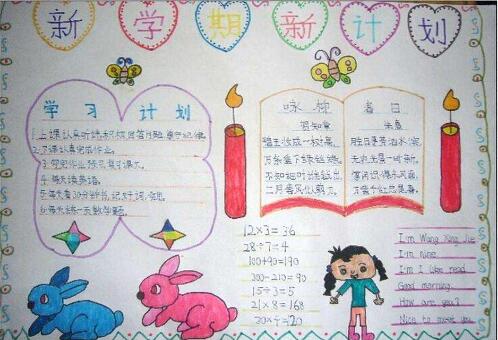 新学期新计划
学习计划
1.上课认真听讲,积极回答问题,遵守纪律。
2.下课认真完成作业。
3.写完作业复习课文。
4.每天读英语。
5.每天看30分钟书,记好词、佳句。
6.每天练一天数学题。
咏柳
贺知章
碧玉妆成一树高,
万条垂下绿丝绦。
不知细叶谁裁出,
二月春风似剪刀。
春日
朱熹
胜日寻芳泗水滨,
无边光景一时新。
等闲识得东风面,
万紫千红总是春。
12×3=36
28÷7=4
100+90=190
300-210=90
15÷3=5
21×8=168
I'm Wang Xing Jie
I'm nine
I'm I like read
Good morning
How are you?
Nice to meet you